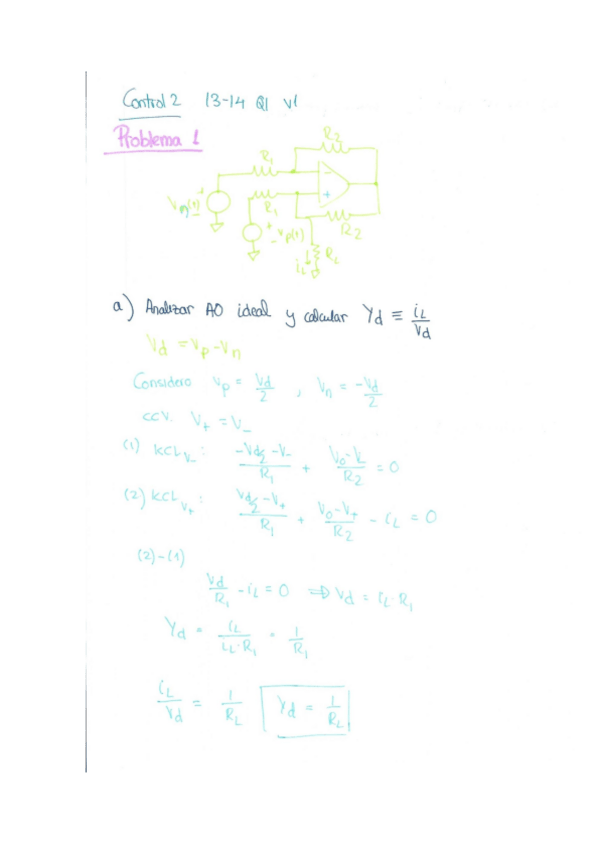 Control 2 13-14 Q1 V1
Problema 1
R2
R1
Vn(t)
R1
+
-
Vp(t)
R2
RL
iL
a) Analizar AO ideal y calcular Yd ≡ iL/Vd
Vd = Vp - Vn
Considero Vp = Vd/2 , Vn = -Vd/2
CCV. V+ = V-
(1) KCL V-: (-Vd/2 - V-)/R1 + (Vo - V-)/R2 = 0
(2) KCL V+: (Vd/2 - V+)/R1 + (Vo - V+)/R2 - iL = 0
(2)-(1)
Vd/R1 - iL = 0 ⇒ Vd = iL·R1
Yd = iL/(iL·R1) = 1/R1
iL/Vd = 1/RL Yd = 1/RL